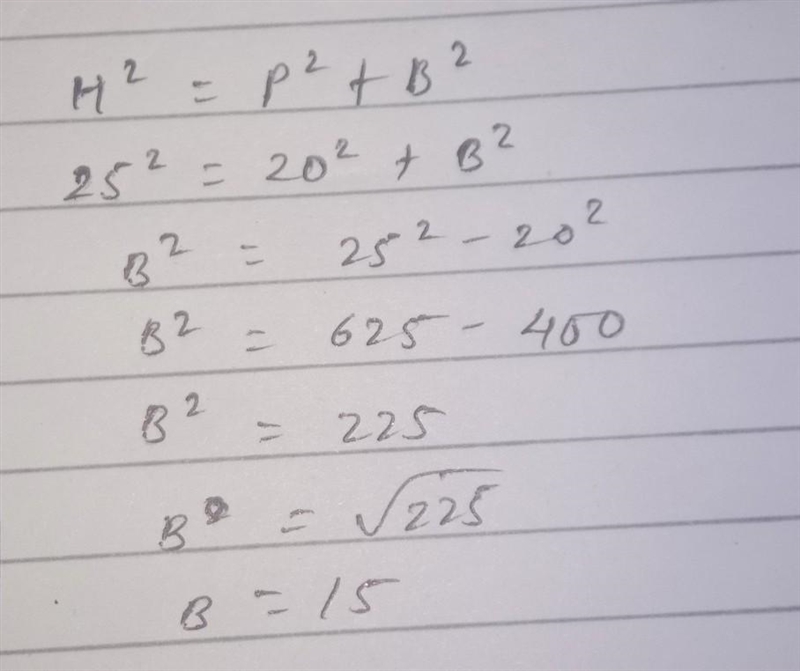 H² = P² + B²
25² = 20² + B²
B² = 25² - 20²
B² = 625 - 400
B² = 225
B = √225
B = 15